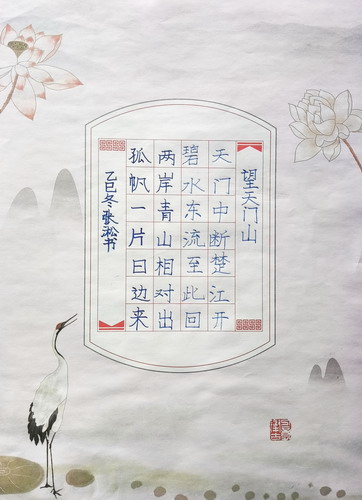 望天门山
天门中断楚江开
碧水东流至此回
两岸青山相对出
孤帆一片日边来
乙巳冬张淞书